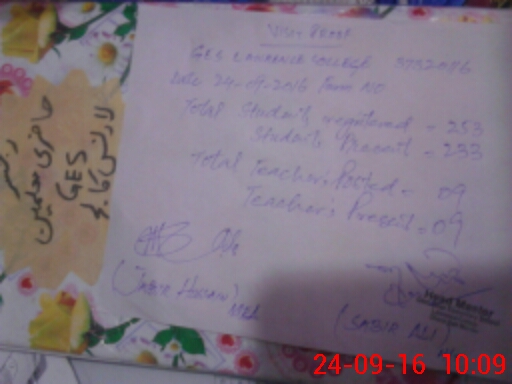 Visit Proof
GES LAWRANCE COLLEGE 3732086
Date 24-09-2016 Time NO
Total Students registered = 253
Students Present = 233
Total Teachers Posted = 09
Teachers Present = 09
(JABIR HUSSAIN)
MEA
Head Master
(SABIR ALI)
حاضری معلمین
GES
لارنس کالج
24-09-16 10:09